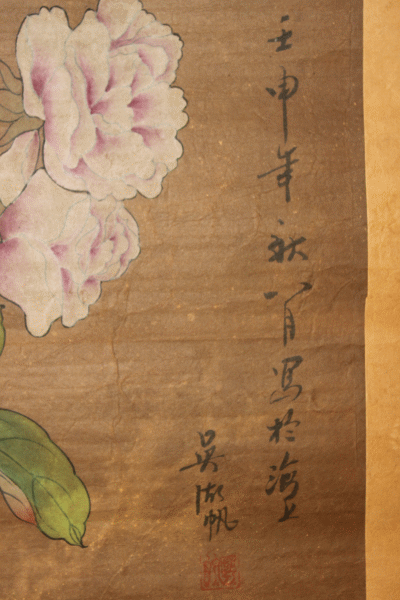 壬申年秋八月写於海上
吴湖帆